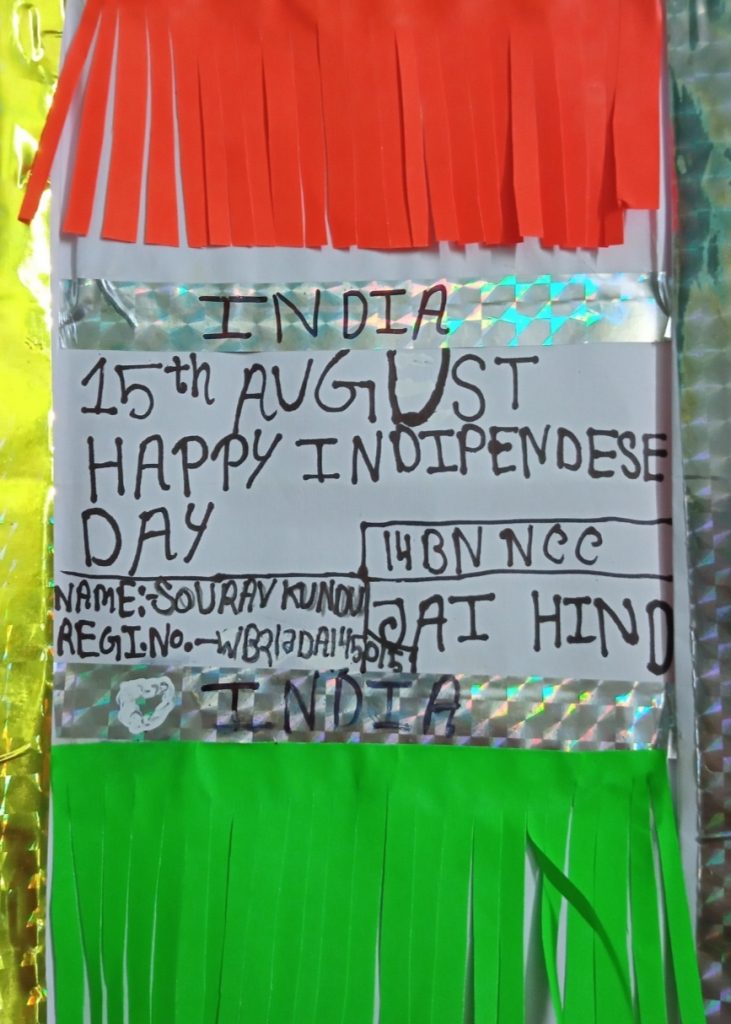 INDIA
15th AUGUST
HAPPY INDIPENDESE
DAY
14 BN NCC
NAME:-SOURAV KUNDU
REGI.No.-WB21
JAI HIND
INDIA